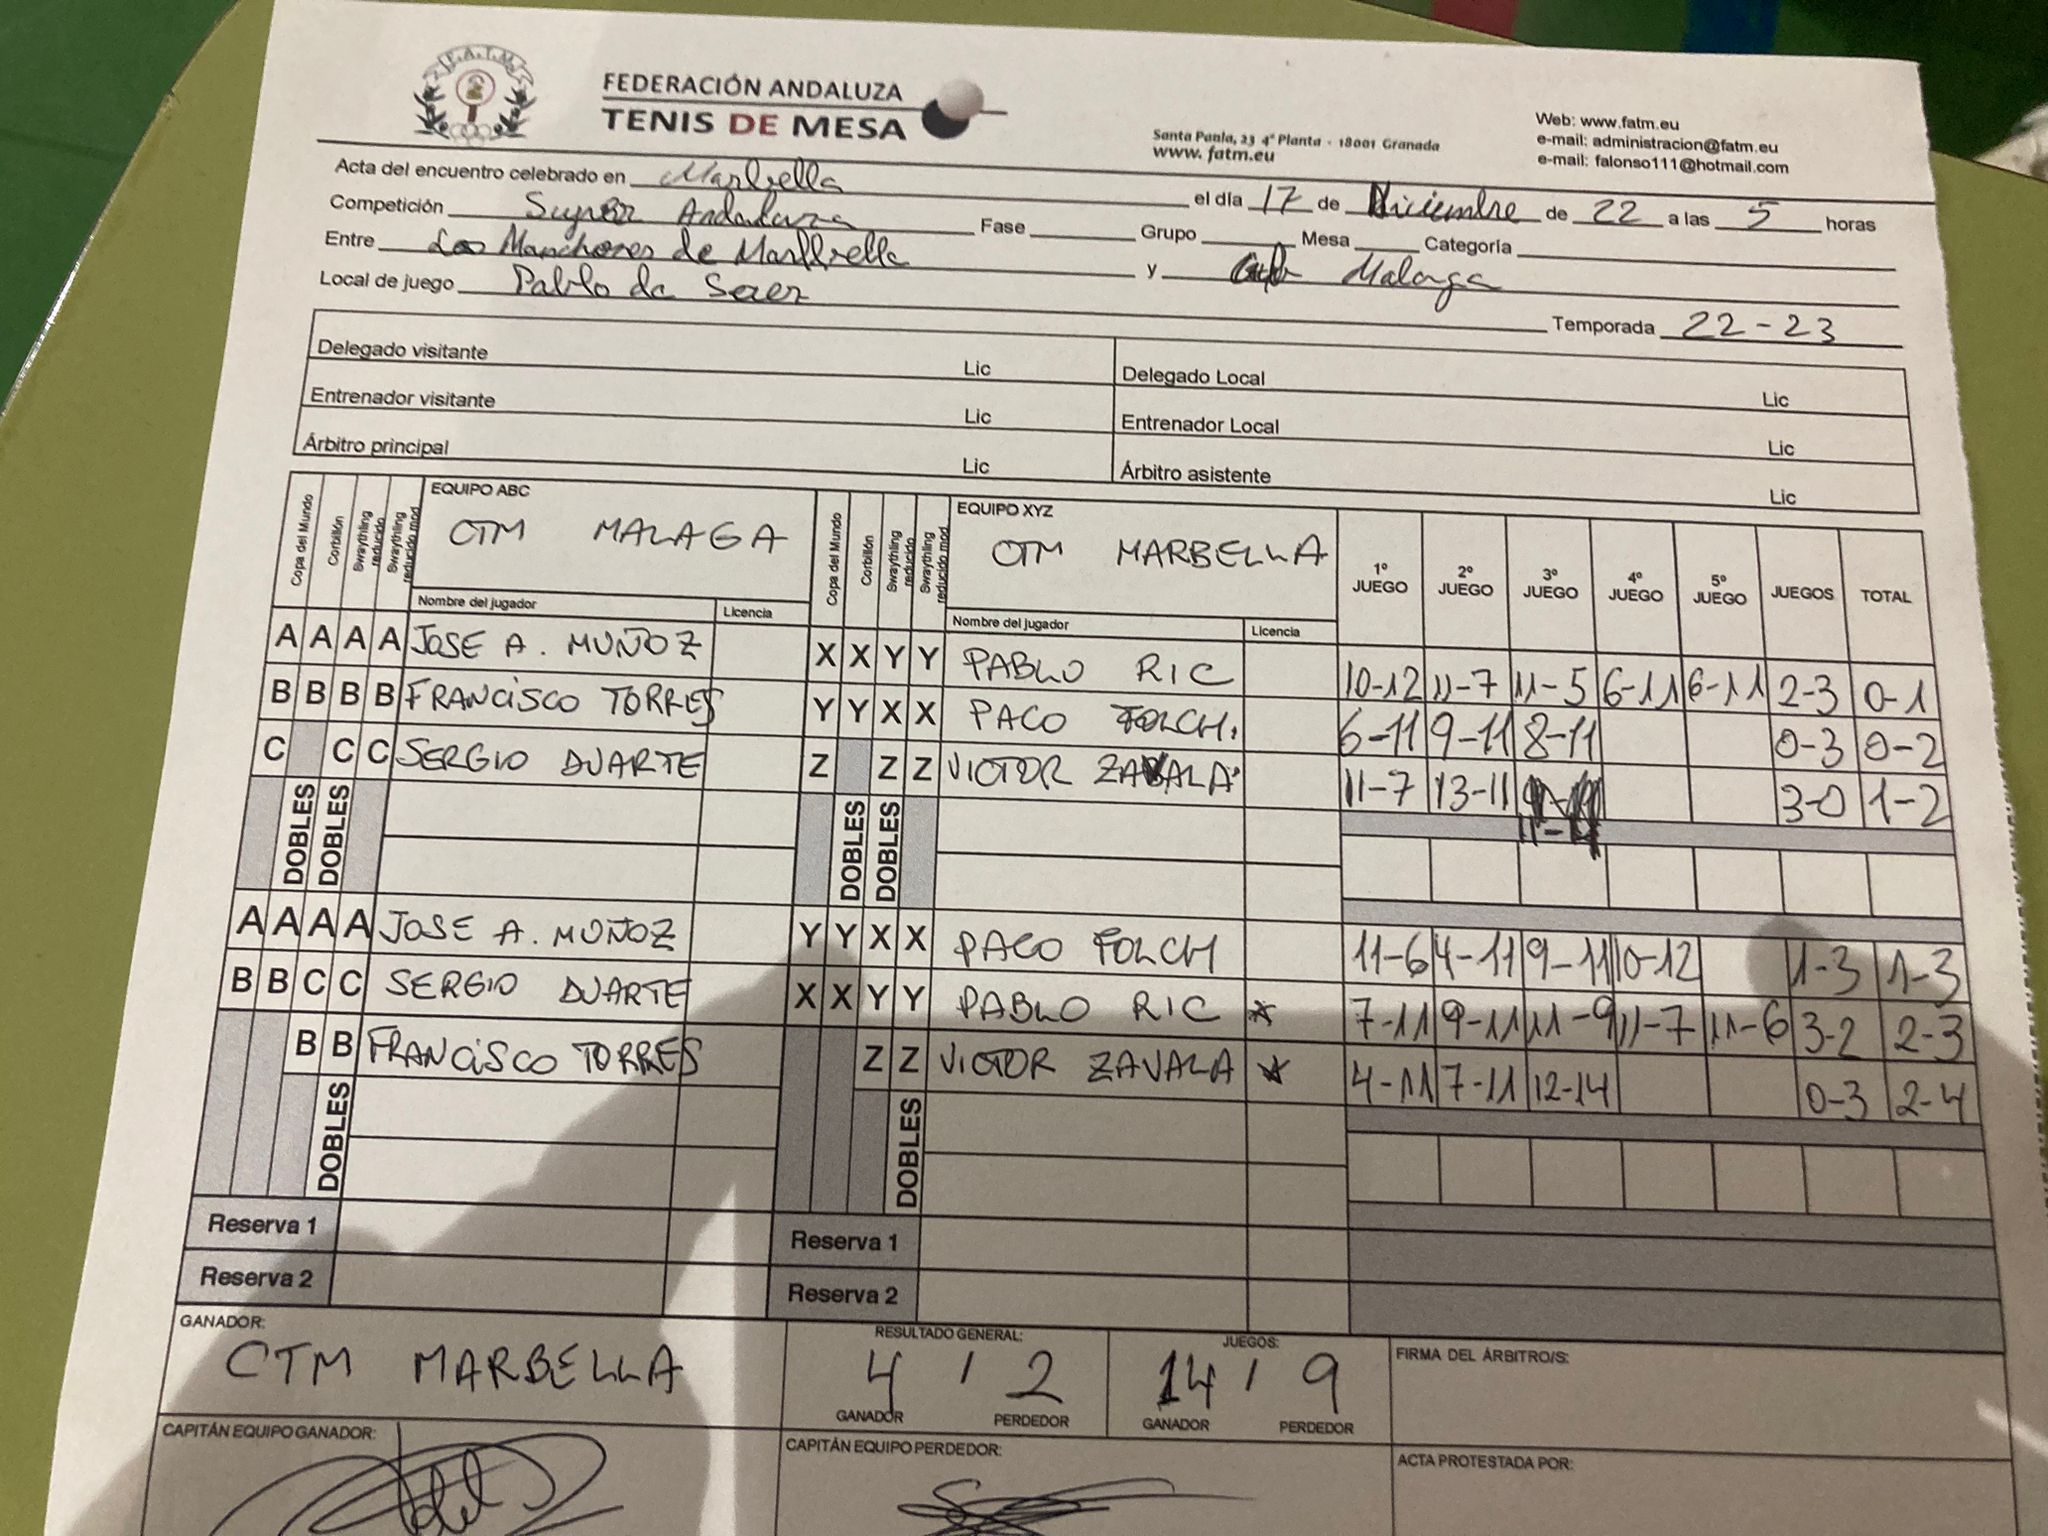 F.A.T.M.
FEDERACIÓN ANDALUZA
TENIS DE MESA
Santa Paula, 23 4ª Planta - 18001 Granada
www.fatm.eu
Web: www.fatm.eu
e-mail: administracion@fatm.eu
e-mail: falonso111@hotmail.com
Acta del encuentro celebrado en Marbella el día 17 de Diciembre de 22 a las 5 horas
Competición Super Andaluza Fase Grupo Mesa Categoría
Entre Los Manchones de Marbella y Málaga
Local de juego Pablo da Temporada 22-23
Delegado visitante Lic Delegado Local Lic
Entrenador visitante Lic Entrenador Local Lic
Árbitro principal Lic Árbitro asistente Lic
Copa del Mundo Corbillón Swaythling reducido Swaythling reducido mod. EQUIPO ABC CTM MALAGA Copa del Mundo Corbillón Swaythling reducido Swaythling reducido mod. EQUIPO XYZ CTM MARBELLA 1º JUEGO 2º JUEGO 3º JUEGO 4º JUEGO 5º JUEGO JUEGOS TOTAL
Nombre del jugador Licencia Nombre del jugador Licencia
A A A A JOSE A. MUÑOZ X X Y Y PABLO RIC 10-12 11-7 11-5 6-11 6-11 2-3 0-1
B B B B FRANCISCO TORRES Y Y X X PACO FOLCH. 6-11 9-11 8-11 0-3 0-2
C C C SERGIO DUARTE Z Z Z VICTOR ZAVALA 11-7 13-11 3-0 1-2
DOBLES DOBLES DOBLES DOBLES
A A A A JOSE A. MUÑOZ Y Y X X PACO FOLCH 11-6 4-11 9-11 10-12 1-3 1-3
B B C C SERGIO DUARTE X X Y Y PABLO RIC 7-11 9-11 11-9 11-7 11-6 3-2 2-3
B B FRANCISCO TORRES Z Z VICTOR ZAVALA 4-11 7-11 12-14 0-3 2-4
DOBLES DOBLES
Reserva 1 Reserva 1
Reserva 2 Reserva 2
GANADOR: RESULTADO GENERAL: JUEGOS: FIRMA DEL ÁRBITRO/S:
CTM MARBELLA 4 / 2 14 / 9
GANADOR PERDEDOR GANADOR PERDEDOR
CAPITÁN EQUIPO GANADOR: CAPITÁN EQUIPO PERDEDOR: ACTA PROTESTADA POR: